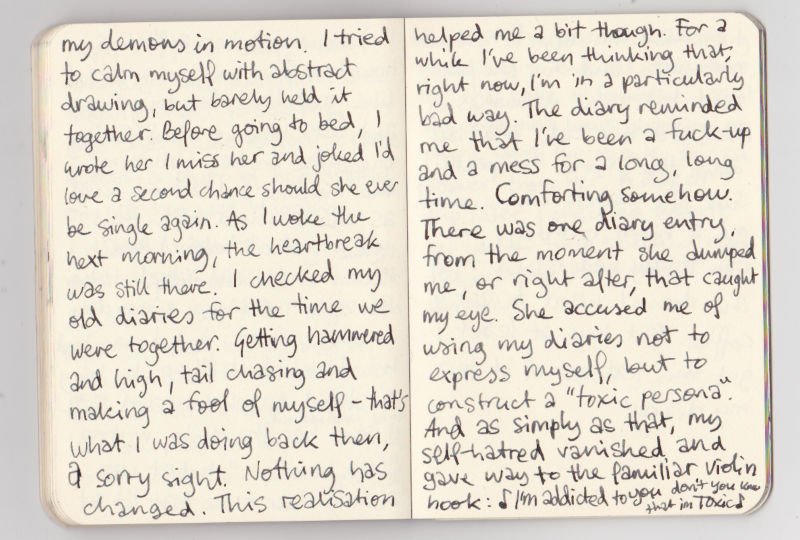 my demons in motion. I tried
to calm myself with abstract
drawing, but barely held it
together. Before going to bed, I
wrote her I miss her and joked I'd
love a second chance should she ever
be single again. As I woke the
next morning, the heartbreak
was still there. I checked my
old diaries for the time we
were together. Getting hammered
and high, tail chasing and
making a fool of myself – that's
what I was doing back then,
a sorry sight. Nothing has
changed. This realisation
helped me a bit though. For a
while I've been thinking that,
right now, I'm in a particularly
bad way. The diary reminded
me that I've been a fuck-up
and a mess for a long, long
time. Comforting somehow.
There was one diary entry,
from the moment she dumped
me, or right after, that caught
my eye. She accused me of
using my diaries not to
express myself, but to
construct a "toxic persona".
And as simply as that, my
self-hatred vanished and
gave way to the familiar violin
hook: ♪ I'm addicted to you don't you know
that im Toxic ♪